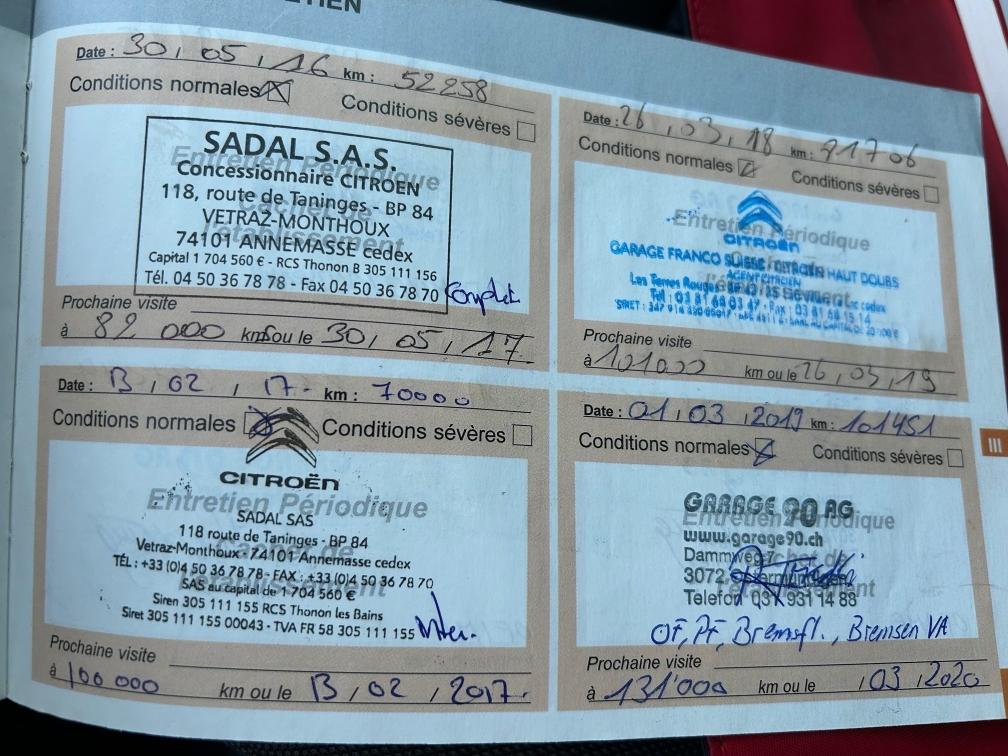 Date : 30, 05, 16 km : 52258
Conditions normales
Conditions sévères
SADAL S.A.S.
Entretien Périodique
Concessionnaire CITROEN
118, route de Taninges - BP 84
VETRAZ-MONTHOUX
74101 ANNEMASSE cedex
Capital 1 704 560 € - RCS Thonon B 305 111 156
Tél. 04 50 36 78 78 - Fax 04 50 36 78 70
Complet
Prochaine visite
à 82 000 km ou le 30, 05, 17
Date : 13, 02, 17 km : 70000
Conditions normales
Conditions sévères
CITROËN
Entretien Périodique
SADAL SAS
118 route de Taninges - BP 84
Vetraz-Monthoux - 74101 Annemasse cedex
TÉL : +33 (0)4 50 36 78 78 - FAX : +33 (0)4 50 36 78 70
SAS au capital de 1 704 560 €
Siren 305 111 155 RCS Thonon les Bains
Siret 305 111 155 00043 - TVA FR 58 305 111 155
Inter.
Prochaine visite
à 100 000 km ou le 13, 02, 2017.
Date : 26, 03, 18 km : 91706
Conditions normales
Conditions sévères
Entretien Périodique
CITROËN
GARAGE FRANCO SUISSE CITROËN HAUT DOUBS
AGENT CITROEN
Les Terres Rouges cedex
Tél : 03 81 68 03 47 - Fax : 03 81 68 15 14
Prochaine visite
à 101000 km ou le 26, 03, 19
Date : 01, 03, 2019 km : 101451
Conditions normales
Conditions sévères
GARAGE 90 AG
Entretien Périodique
www.garage90.ch
Dammweg 7
3072
Telefon 031 931 14 88
OF, PF, Bremsfl., Bremsen VA
Prochaine visite
à 131'000 km ou le , 03, 2020
III